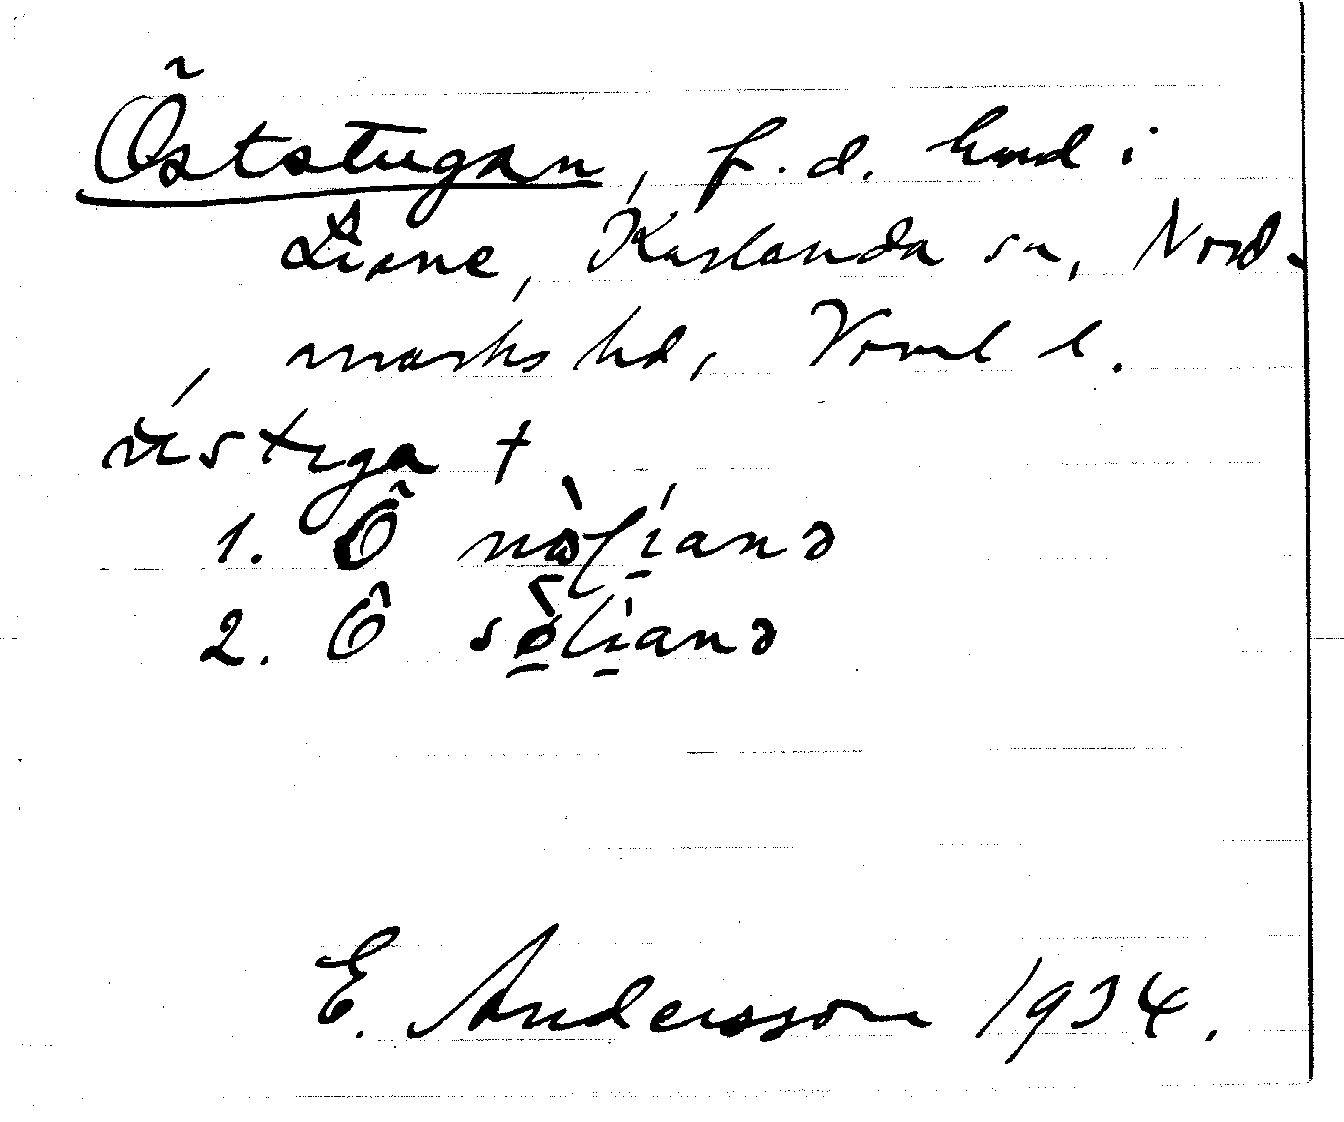 Öststugan, f.d. hmd i
Liane, Karlanda sn, Nord-
marks hd, Vrml l.
üstᴇga †
1. Ô nòḷi̱anə
2. Ô sø̱̀li̱anə
E. Andersson 1934.